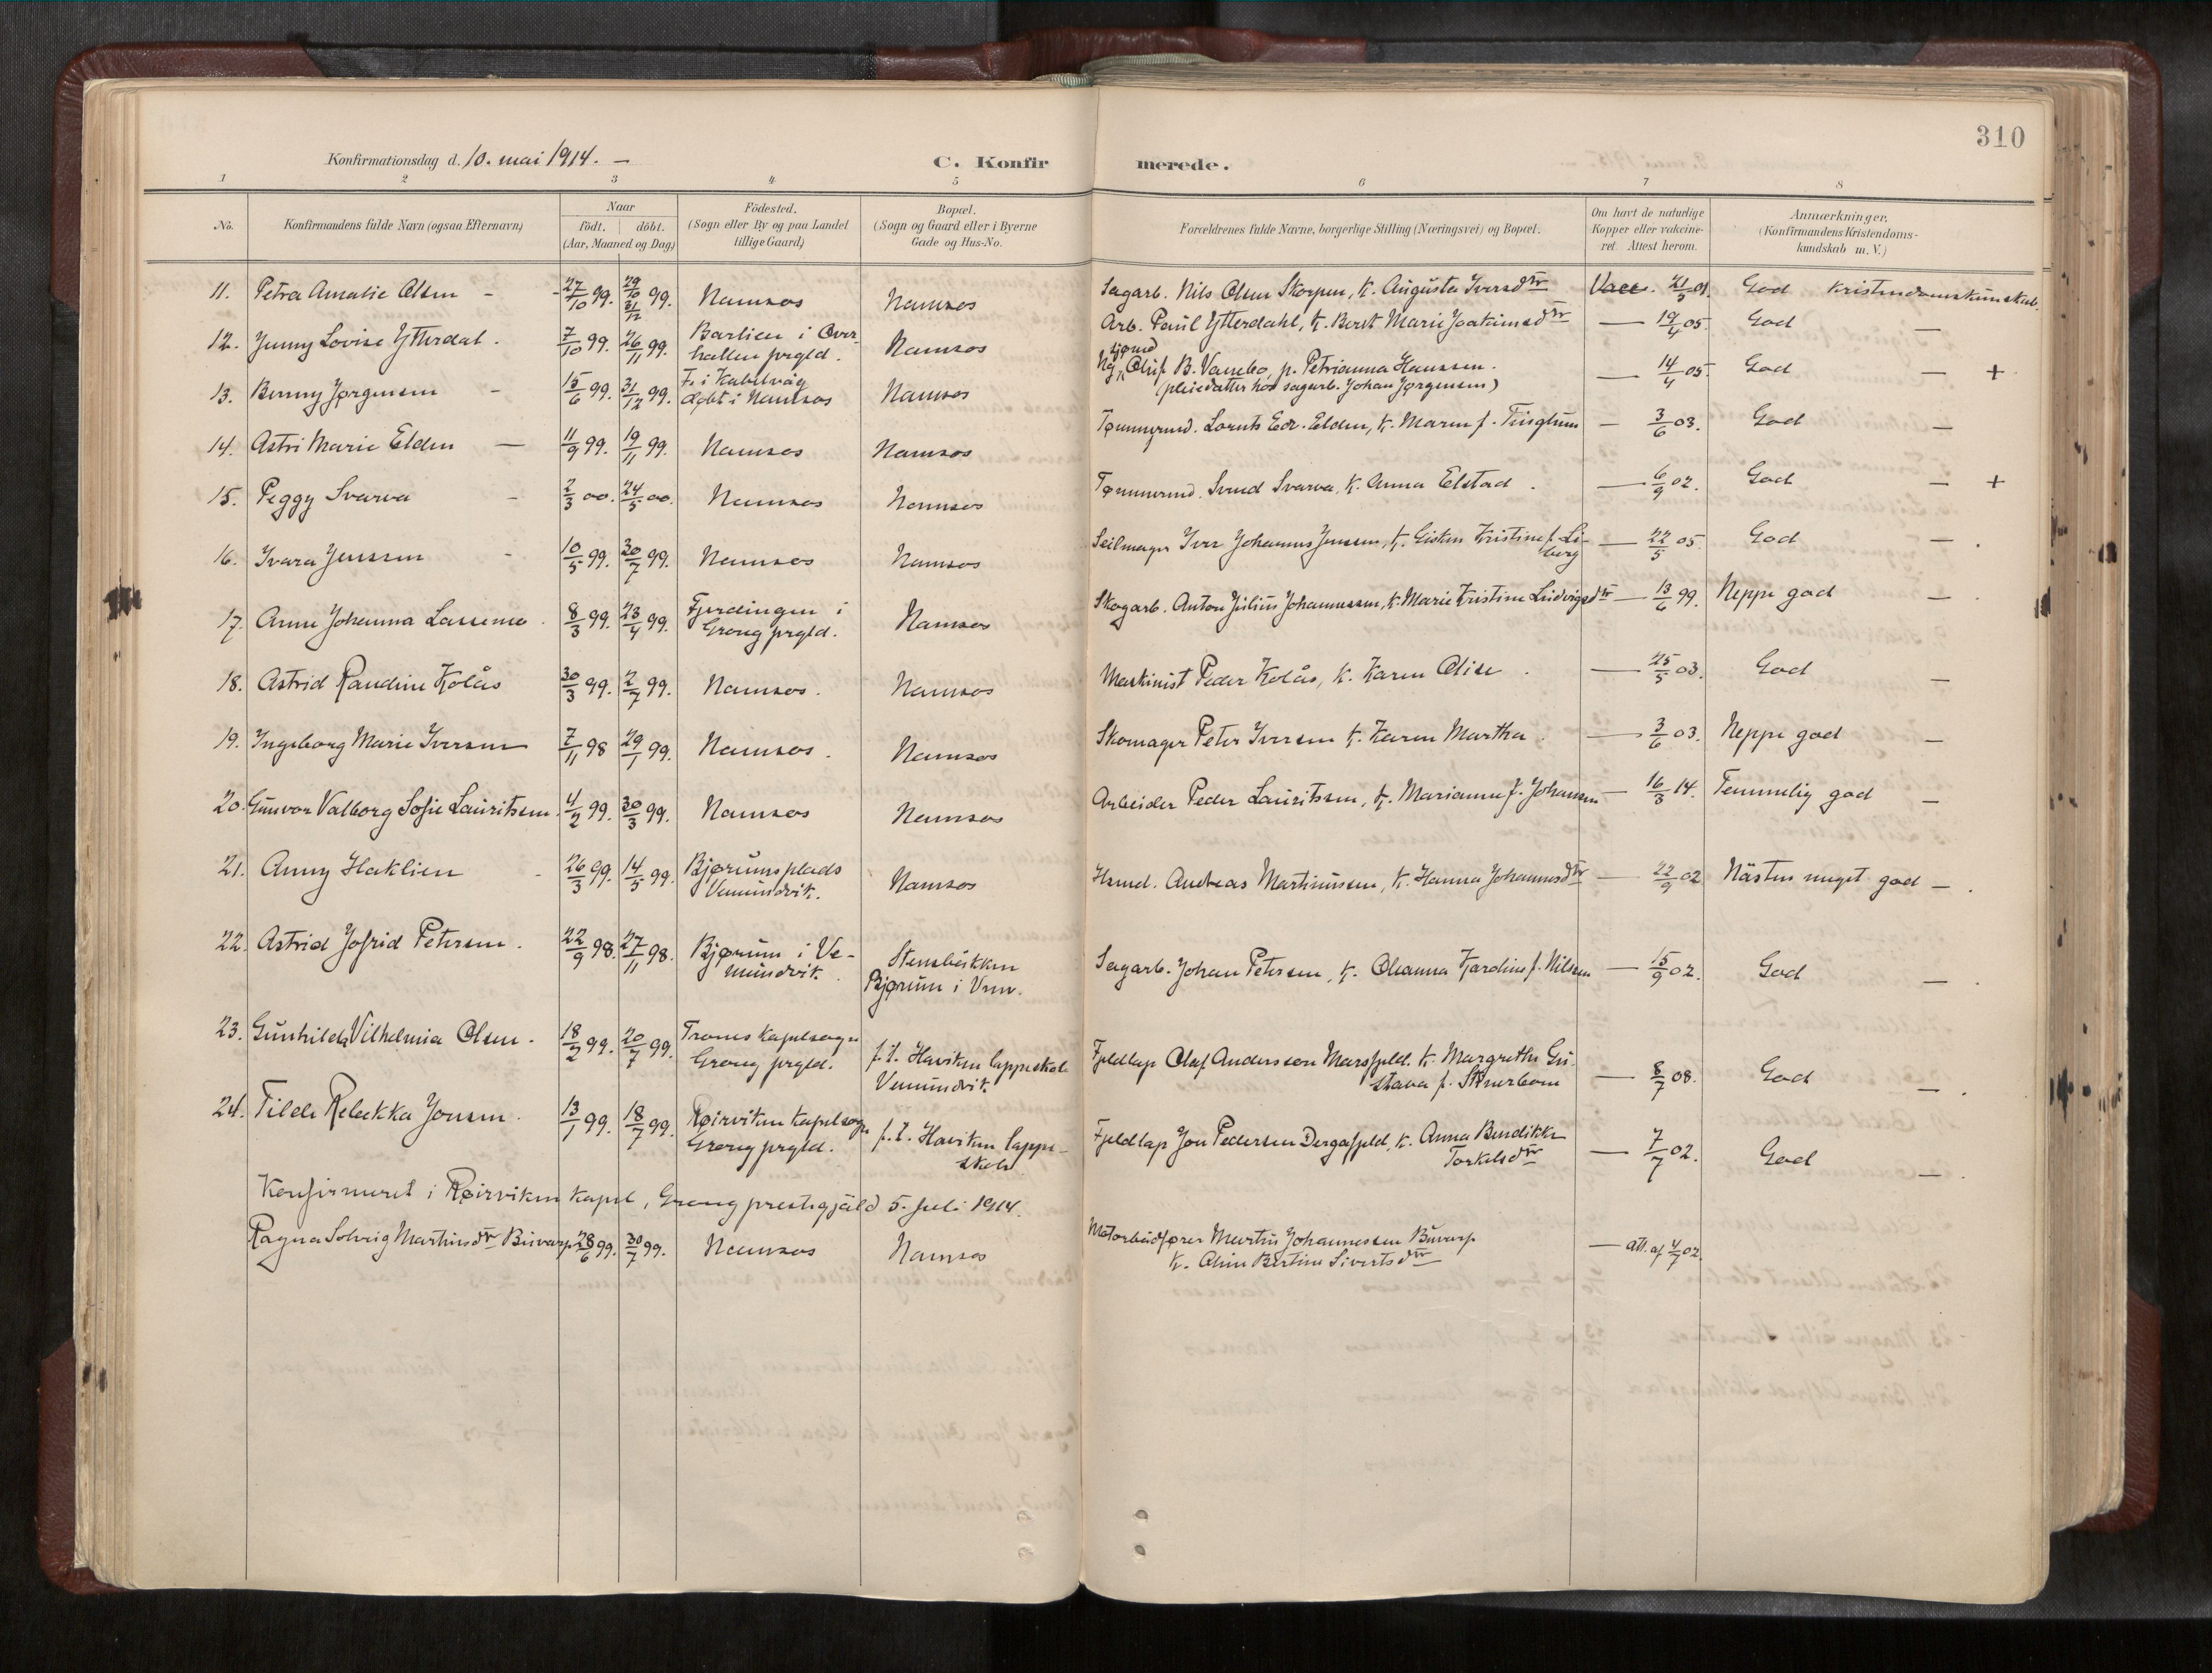 310
Konfirmationsdag d. 10. mai 1914. —
C. Konfir merede.
1 2 3 4 5 6 7 8
No. Konfirmandens fulde Navn (ogsaa Efternavn) Naar födt. döbt. (Aar, Maaned og Dag) Födested. (Sogn eller By og paa Landet tillige Gaard) Bopæl. (Sogn og Gaard eller i Byerne Gade og Hus-No. Forældrenes fulde Navne, borgerlige Stilling (Næringsvei) og Bopæl. Om havt de naturlige Kopper eller vakcineret. Attest herom. Anmærkninger. (Konfirmandens Kristendomskundskab m. V.)
11. Petra Amalie Olsen - 27/10 99. 29/10 31/12 99. Namsos Namsos Sagarb. Nils Olsen Skorpen, k. Augusta Iversdtr Vacc. 21/5 01. God Kristendomskunskab.
12. Jenny Lovise Ytterdal. 7/10 99. 26/11 99. Barlien i Overhallen prgld. Namsos Arb. Paul Ytterdahl, k. Berit Marie Joakimsdtr — 19/4 05. God —
13. Benny Jørgensen - 15/6 99. 31/12 99. F. i Kabelvåg døbt i Namsos Namsos Ng tjømd Oluf B. p. Petrianna Hanssen. (pleiedatter hos sagarb. Johan Jørgensen) — 14/4 05. God — +
14. Astri Marie Elden — 11/9 99. 19/11 99. Namsos Namsos Tømmermd. Lornts Edv. Elden, k. Maren f. Tinglum — 3/6 03. God —
15. Peggy Svarva - 2/3 00. 24/5 00. Namsos Namsos Tømmermd. Svend Svarva, k. Anna Elstad. — 6/9 02. God — +
16. Ivara Jenssen - 10/5 99. 30/7 99. Namsos Namsos Seilmager Iver Johannes Jenssen, k. Kristine f. Liberg — 22/5 05. God —
17. Anne Johanna Lassemo. 8/3 99. 23/4 99. Fjerdingen i Grong prgld. Namsos Skogarb. Anton Julius Johannessen, k. Marie Kristine Ludvigsdtr — 13/6 99. Neppe god —
18. Astrid Randine Kolås 30/3 99. 2/7 99. Namsos. Namsos Maskinist Peder Kolås, k. Karen Olise. — 25/5 03. God —
19. Ingeborg Marie Iversen 7/11 98 29/1 99. Namsos. Namsos Skomager Peter Iversen k. Karen Martha. — 3/6 03. Neppe god —
20. Gunvor Valborg Sofie Lauritssen. 4/2 99. 30/3 99. Namsos Namsos Arbeider Peder Lauritssen, k. Marianne f. Johansen — 16/3 14. Temmelig god —
21. Anny Haklien 26/3 99. 14/5 99. Bjørumsplads Vemundvik. Namsos Hsmd. Andreas Martinussen, k. Hanna Johannesdtr — 22/9 02 Næsten meget god —
22. Astrid Jofrid Petersen. 22/9 98. 27/11 98. Bjørum i Vemundvik. Stensbækken Bjørum i Vem. Sagarb. Johan Petersen, k. Oleanna f. Nilssen — 15/9 02. God —
23. Gunhilda Vilhelmia Olsen. 18/2 99. 20/7 99. Trones kapelsogn Grong prgld. f.t. Haviken lappeskole Vemundvik Fjeldlap Olaf Anderssen Marsfjeld. k. Margrethe Gustava f. Stenerbom — 8/7 08. God —
24. Tilde Rebekka Jonsen. 13/1 99. 18/7 99. Røirviken kapelsogn Grong prgld. f.t. Haviken lappeskole Fjeldlap Jon Pedersen Dergafjeld, k. Anna Bendikke Torkelsdtr — 7/7 02. God —
Konfirmeret i Røirviken kapel, Grong prestegjæld 5. juli 1914.
Ragna Solveig Martinsdtr Buvarp 28/6 99. 30/7 99. Namsos Namsos Motorbådfører Martin Johannessen Buvarp k. Oline Bertine Sivertsdtr — att. af 4/7 02.